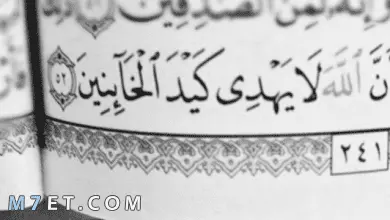 إنه لمن الصدقين ٥١
أن الله لا يهدى كيد الخائنين ٥٢
٢٤١
M7ET.COM